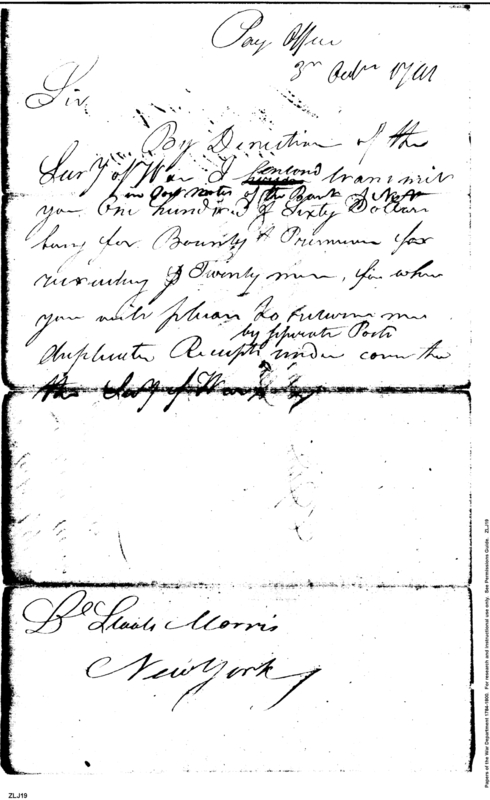 Pay Office
3rd Octr 1791
Sir
By Direction of the
Secy of War I enclosed transmit
in Post Notes of the Bank of
you One hundred & Sixty Dollars
being for Bounty & Premium for
recruiting of Twenty men, for which
you will please to return me
by seperate Posts
duplicate Receipts under cover to
the Secy of War
Staats Morris
New York
Papers of the War Department 1784-1800. For research and instructional use only. See Permissions Guide. ZLJ19
ZLJ19